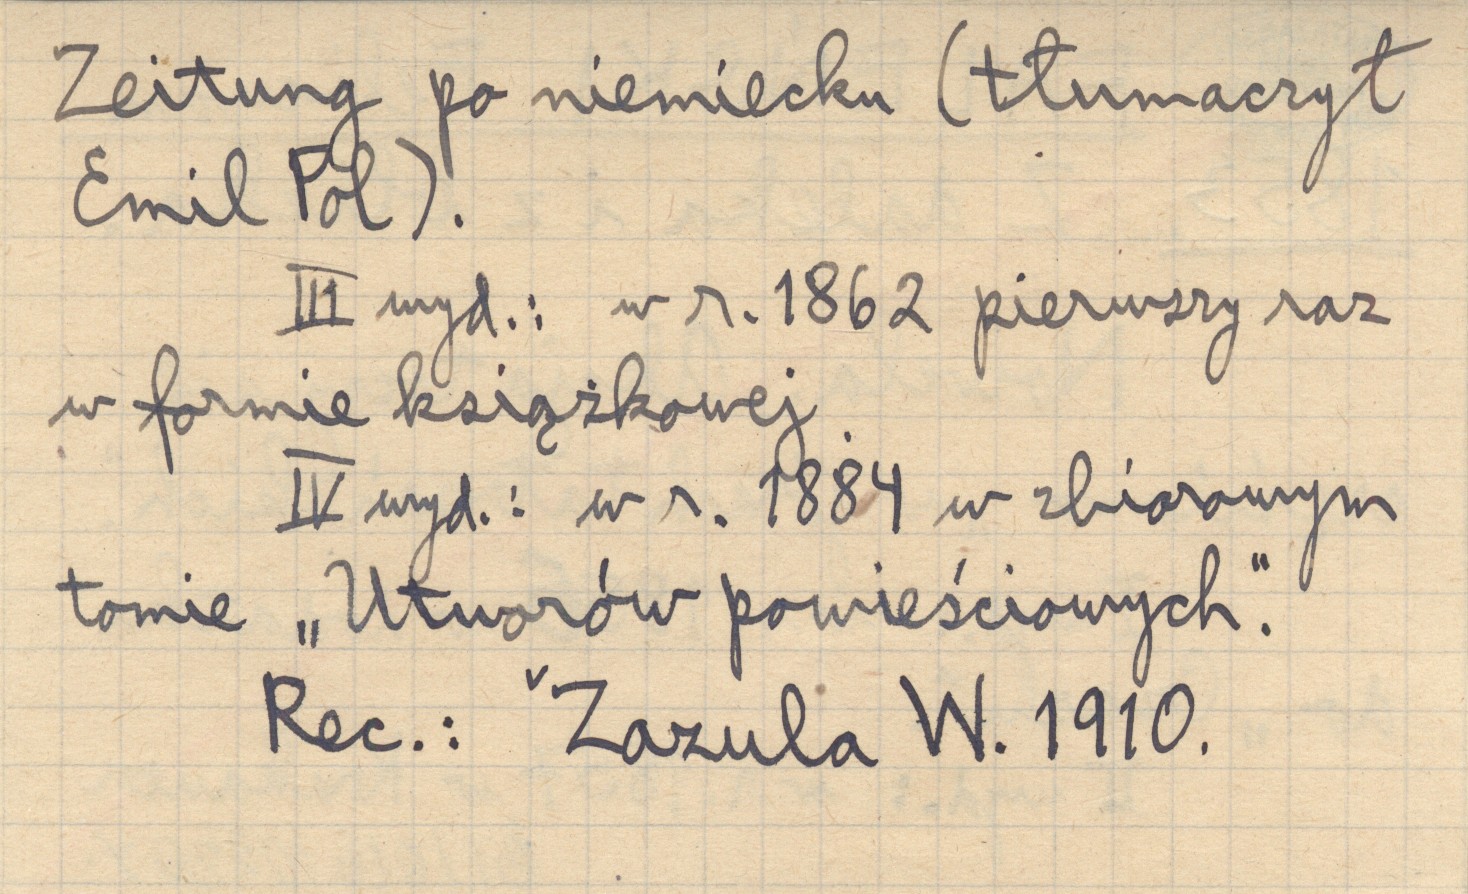 Zeitung po niemiecku (tłumaczył
Emil Pol).
III wyd.: w r. 1862 pierwszy raz
w formie książkowej.
IV wyd.: w r. 1884 w zbiorowym
tomie „Utworów powieściowych".
Rec.: ˇZazula W. 1910.